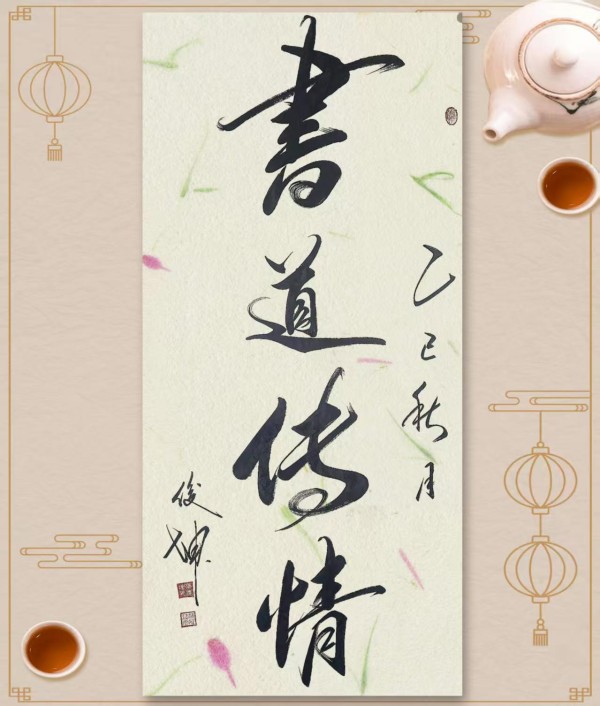 乙巳秋月
書道傳情
俊坤